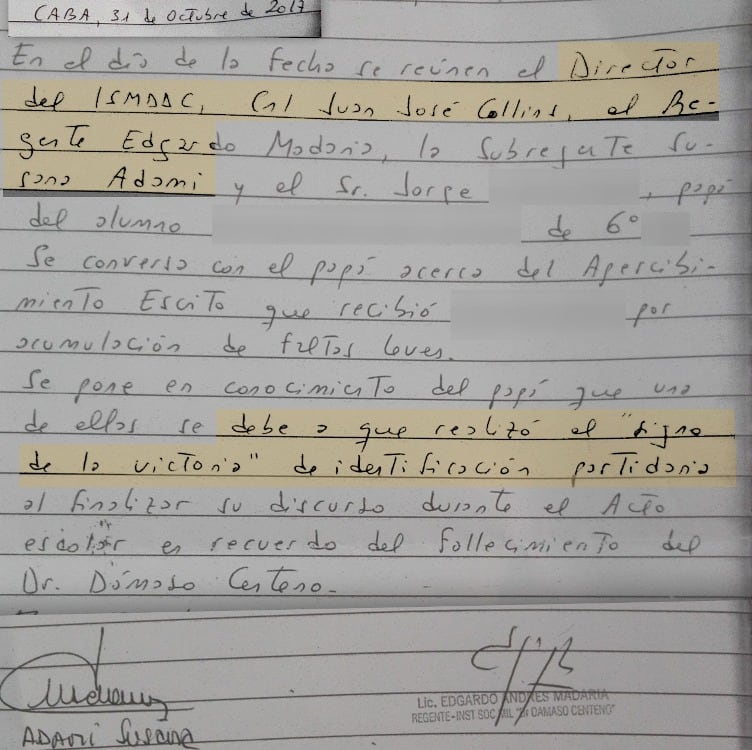 CABA, 31 de Octubre de 2017
En el día de la fecha se reúnen el Director
del ISMDDC, Cnl Juan José Collins, el Re-
gente Edgardo Madaria, la Subregente Su-
sana Adami y el Sr. Jorge , papá
del alumno de 6°
Se conversa con el papá acerca del Apercibi-
miento Escrito que recibió por
acumulación de faltas leves.
Se pone en conocimiento del papá que una
de ellas se debe a que realizó el "signo
de la victoria" de identificación partidaria
al finalizar su discurso durante el Acto
escolar en recuerdo del fallecimiento del
Dr. Dámaso Centeno.
ADAMI Susana
Lic. EDGARDO ANDRES MADARIA
REGENTE-INST SOC MIL "Dr DAMASO CENTENO"